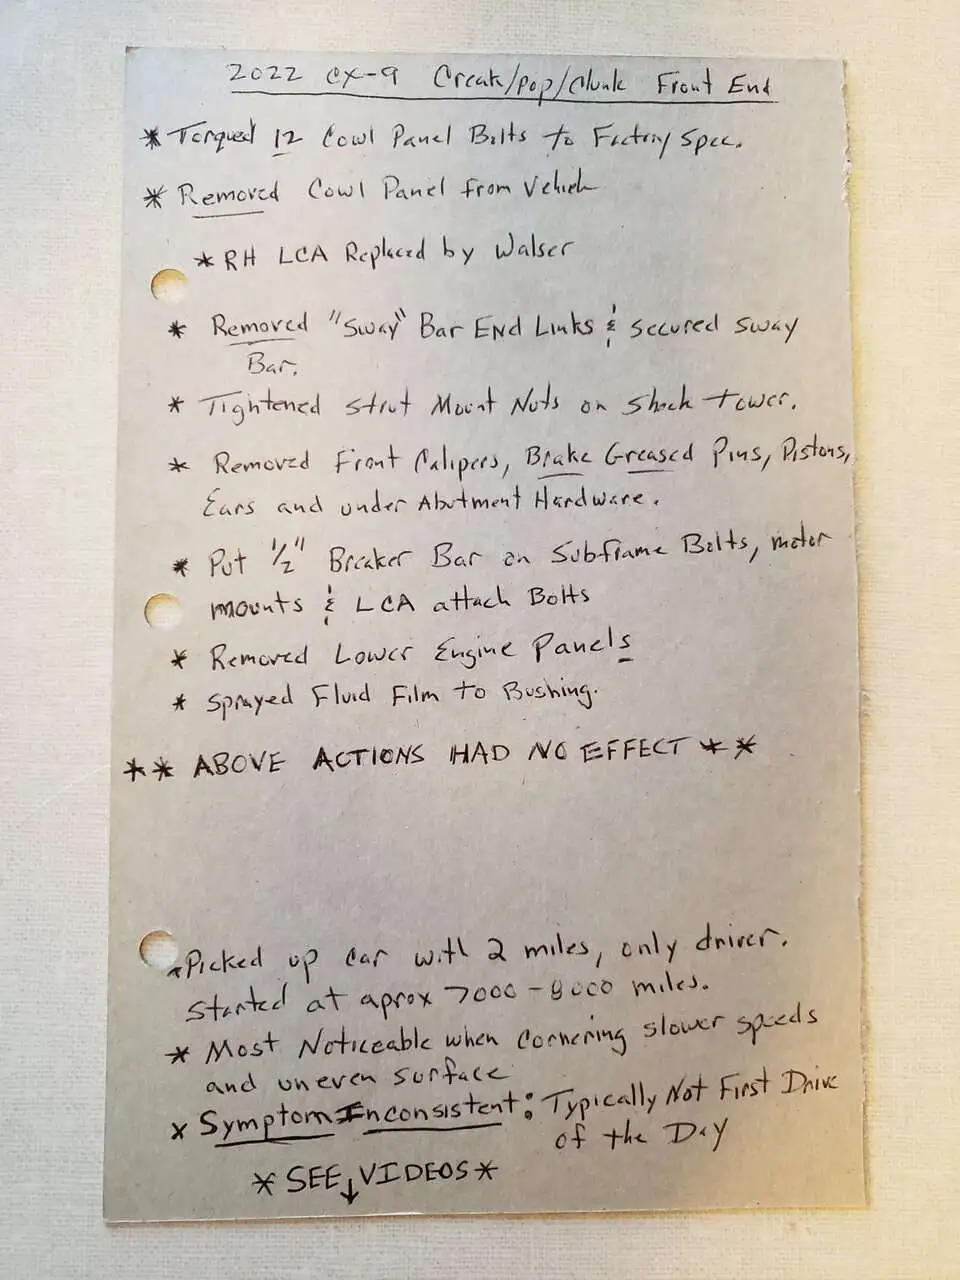 2022 CX-9 Creak/pop/clunk Front End
* Torqued 12 Cowl Panel Bolts to Factory Spec.
* Removed Cowl Panel from Vehicle
* RH LCA Replaced by Walser
* Removed "Sway" Bar End Links & secured sway
Bar.
* Tightened Strut Mount Nuts on Shock tower.
* Removed Front Calipers, Brake Greased Pins, Pistons,
Ears and under Abutment Hardware.
* Put 1/2" Breaker Bar on Subframe Bolts, motor
mounts & LCA attach Bolts
* Removed Lower Engine Panels
* Sprayed Fluid Film to Bushing.
** ABOVE ACTIONS HAD NO EFFECT **
* Picked up car with 2 miles, only driver.
Started at aprox 7000-8000 miles.
* Most Noticeable when cornering slower speeds
and uneven surface
* Symptom Inconsistent: Typically Not First Drive
of the Day
* SEE ↓ VIDEOS *